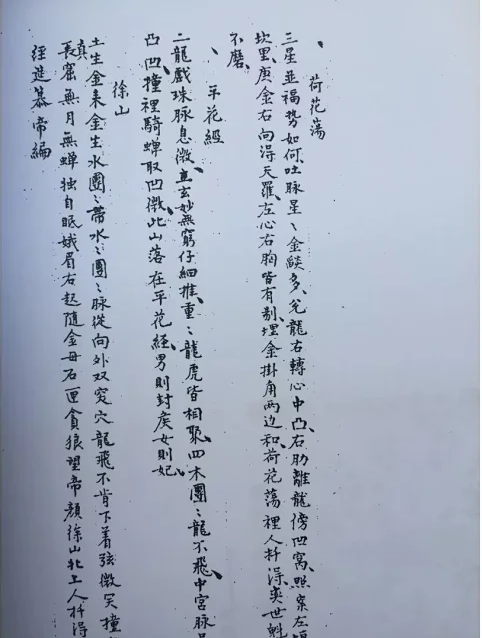 荷花蕩
三星並福勢如何、吐脉星〻金燄多、兌龍右轉心中凸、右肋離龍傍凹窩、照案左
坎里、庚金右向得天羅、左心右胸皆有剔、埋金掛角两边和、荷花蕩裡人扦得、奕世魁
不磨、
平花經
二龍戲珠脉息微、玄妙無窮仔細推、重〻龍虎皆相聚、四木團〻龍不飛、中宮脉
凸凹撞裡騎蝉取凹微、此山落在平花經、男則封侯女則妃、
徐山
土生金来金生水、團〻帶水〻團〻、脉從向外双穴龍飛不肯下着弦微突撞
真
長窟無月無蝉独自眠娥眉右起隨金母石匣貪狼望帝顏徐山北上人扦得
經進慕帝編